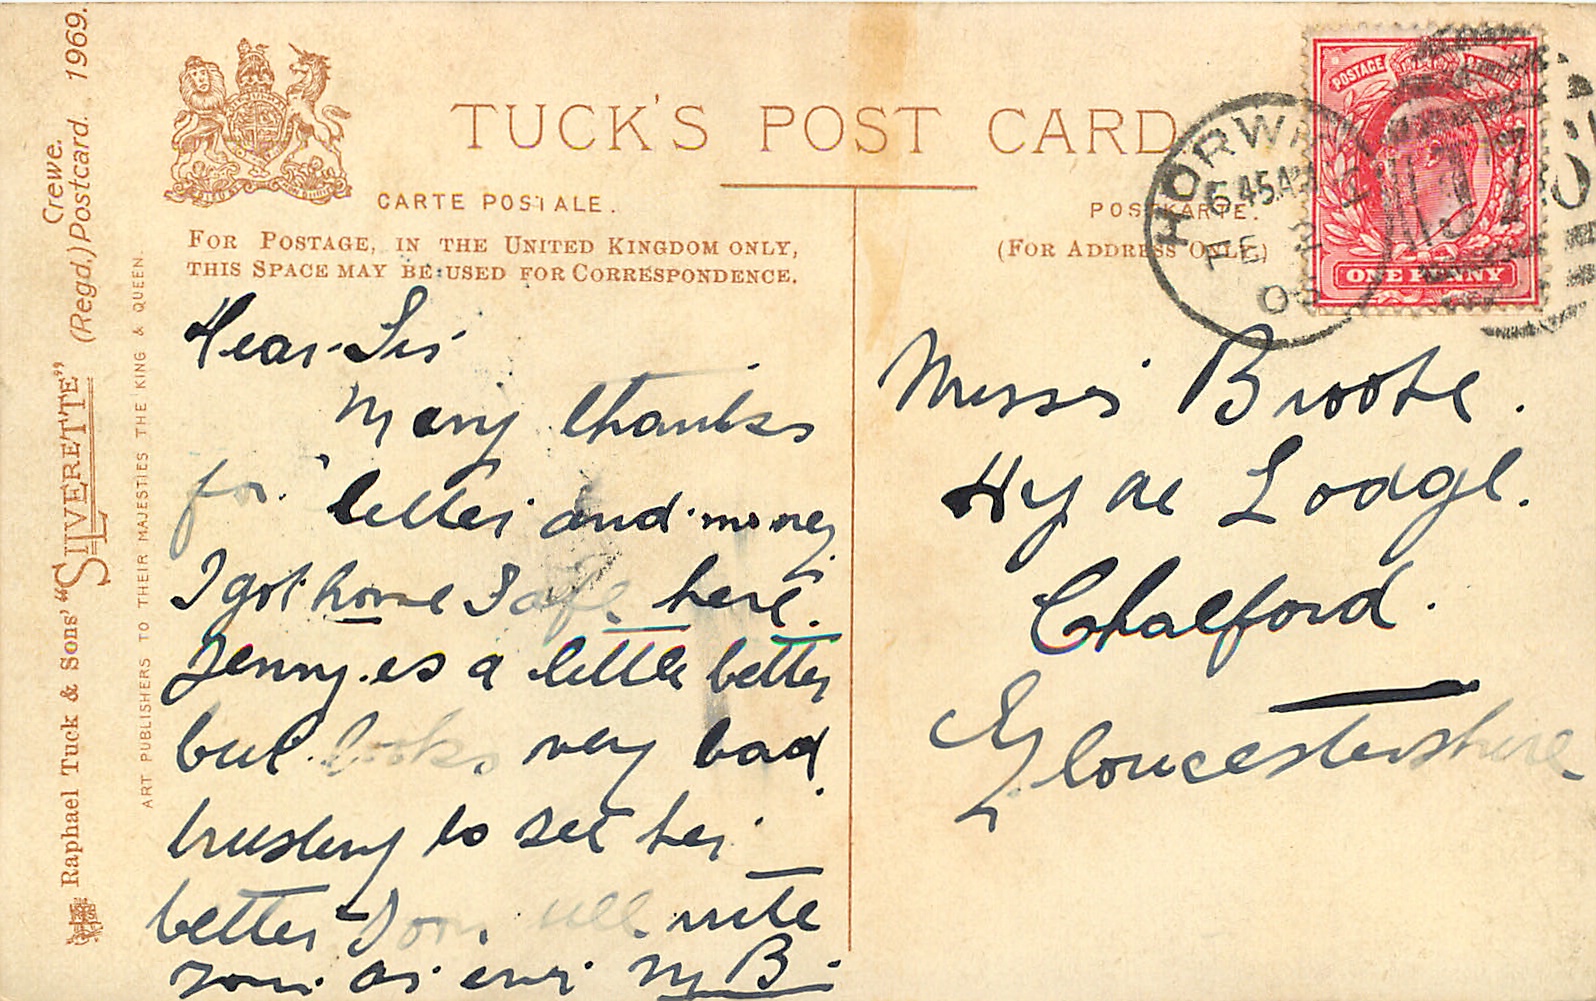 Crewe.
Raphael Tuck & Sons' "SILVERETTE" (Regd.) Postcard. 1969.
ART PUBLISHERS TO THEIR MAJESTIES THE KING & QUEEN.
TUCK'S POST CARD
CARTE POSTALE.
POSTKARTE.
FOR POSTAGE, IN THE UNITED KINGDOM ONLY,
THIS SPACE MAY BE USED FOR CORRESPONDENCE.
(FOR ADDRESS ONLY)
POSTAGE
ONE PENNY
HORWI
FE 2
Dear Sis
Many thanks
for letter and money
I got home Safe here.
Jenny is a little better
but looks very bad
trusting to see her
better Soon will write
your as ever M B
Brooke.
Hyde Lodge.
Chalford.
Gloucestershire